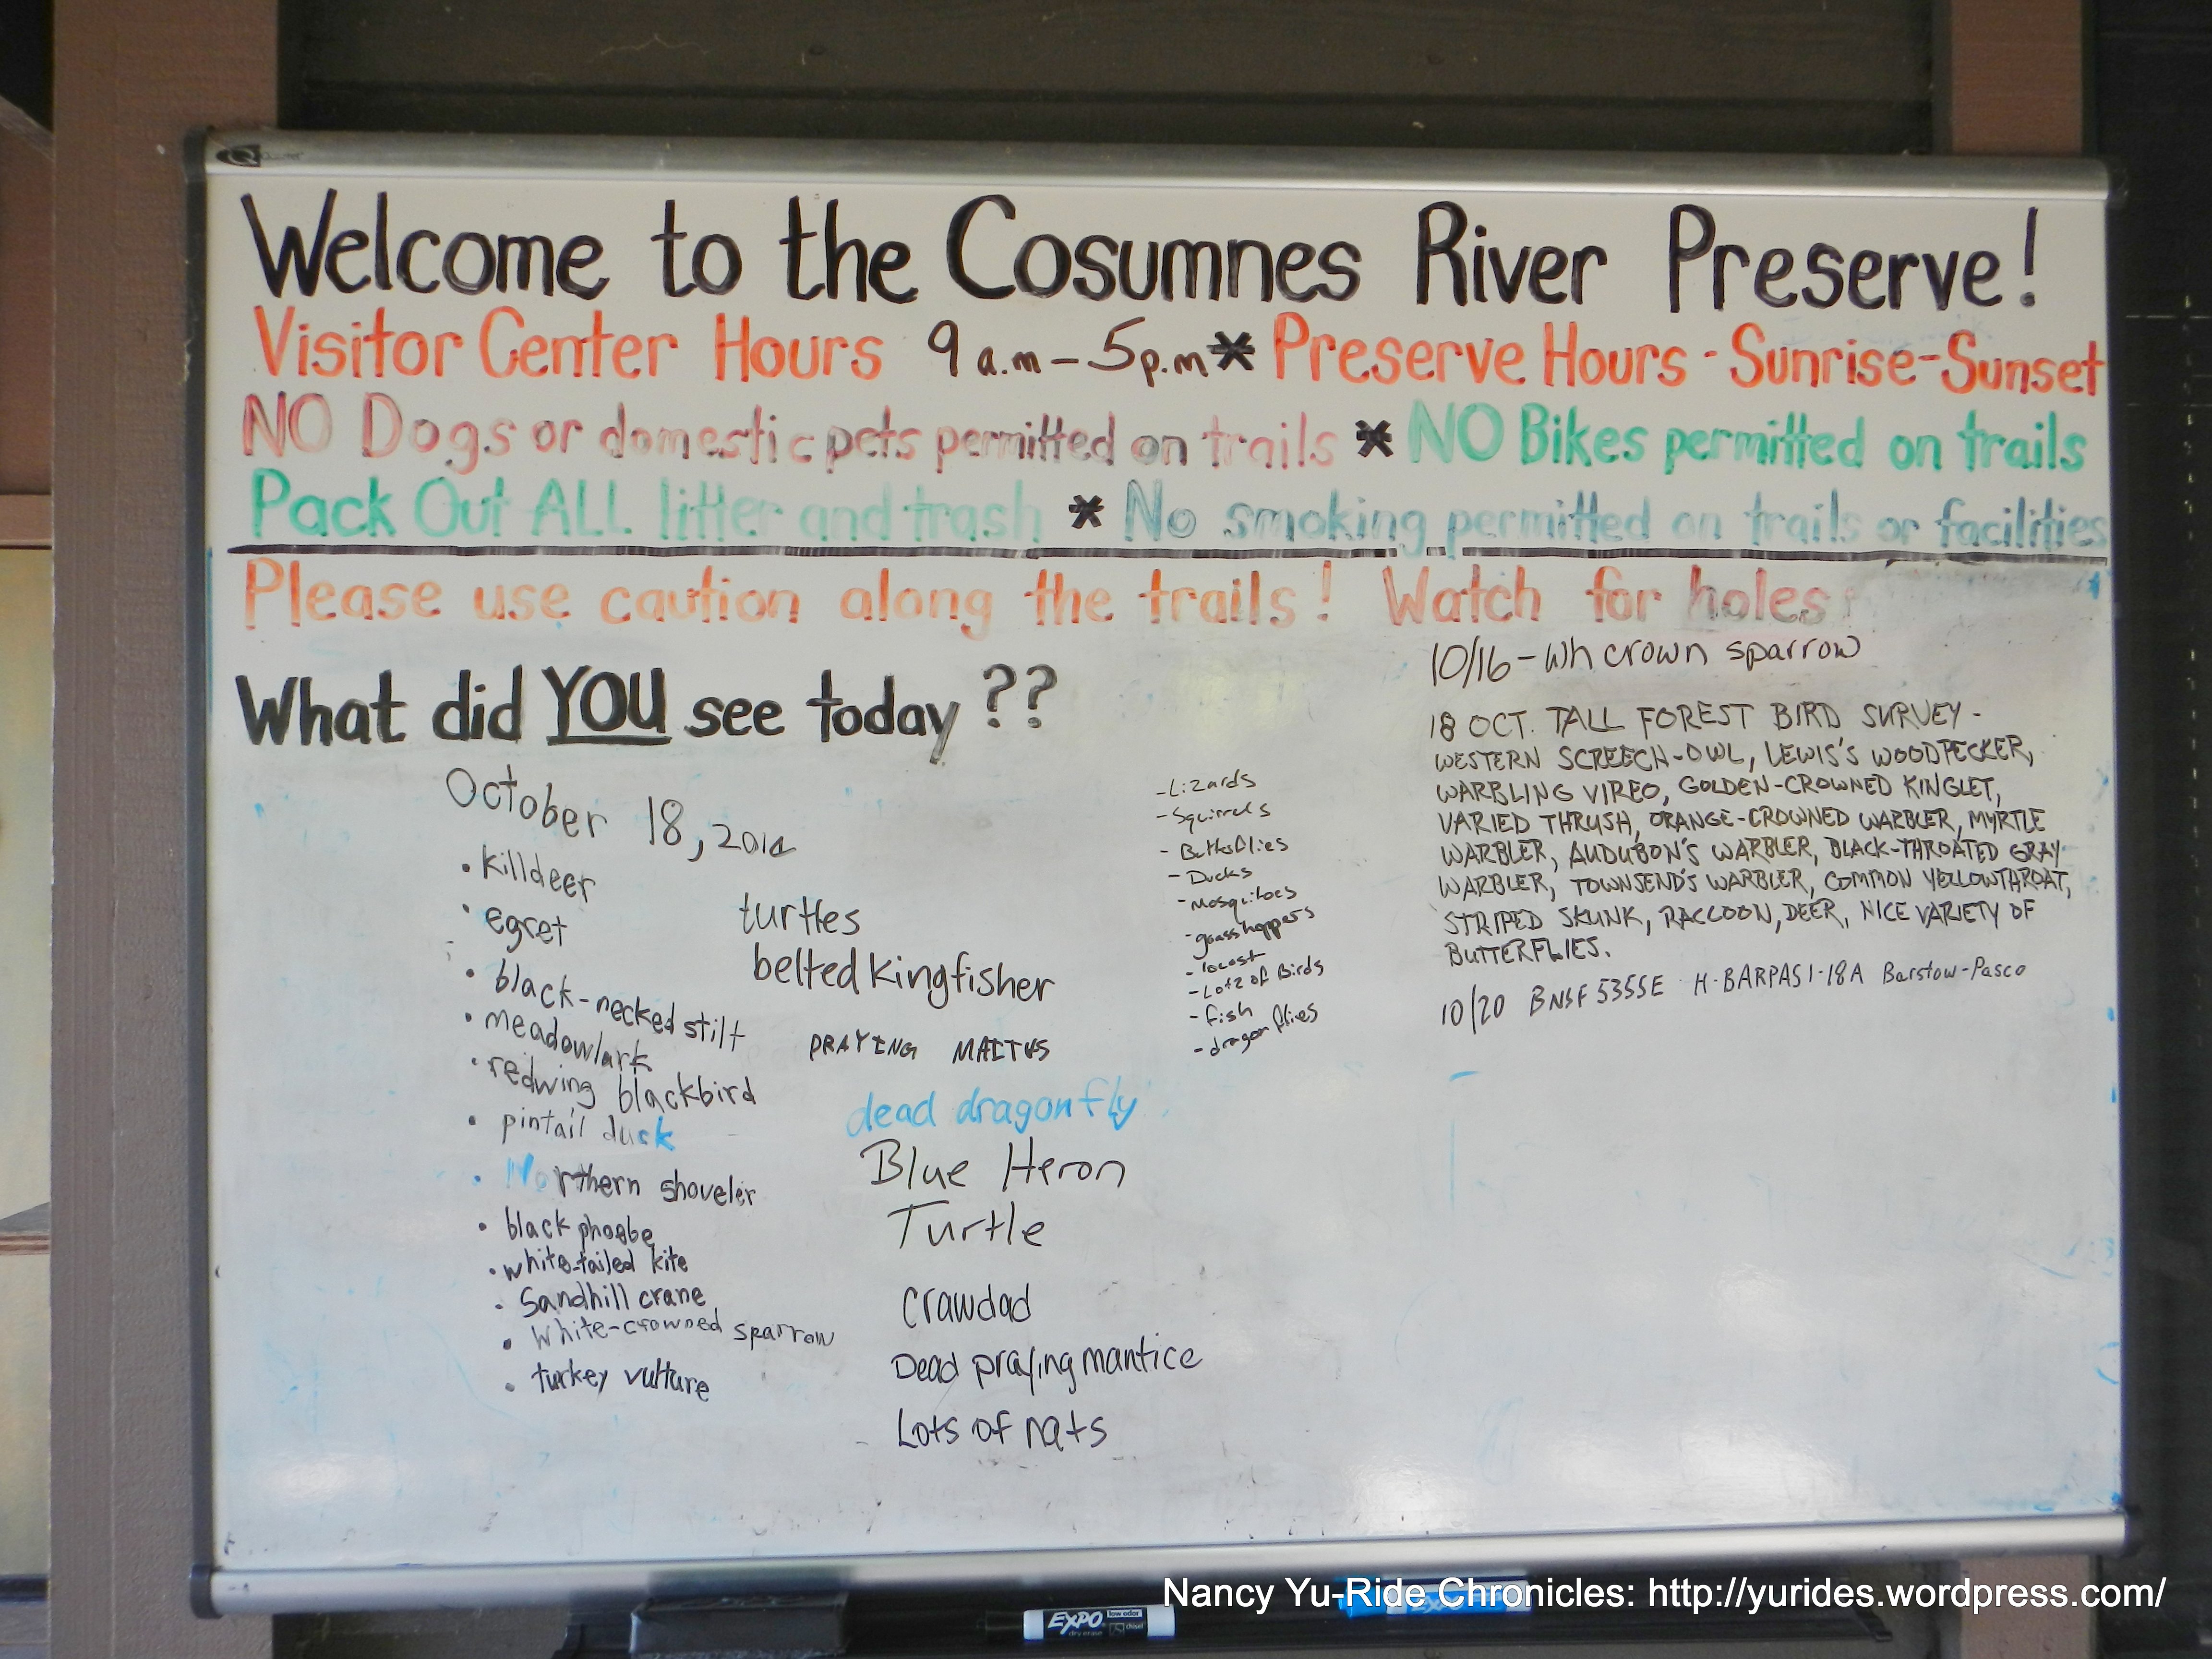 Welcome to the Cosumnes River Preserve!
Visitor Center Hours 9 a.m - 5 p.m * Preserve Hours - Sunrise-Sunset
NO Dogs or domestic pets permitted on trails * NO Bikes permitted on trails
Pack Out ALL litter and trash * No smoking permitted on trails or facilities
Please use caution along the trails! Watch for holes!
What did YOU see today??
October 18, 2014
• killdeer
• egret
• black-necked stilt
• meadowlark
• redwing blackbird
• pintail duck
• Northern shoveler
• black phoebe
• white-tailed kite
• Sandhill crane
• White-crowned sparrow
• turkey vulture
turtles
belted kingfisher
PRAYING MAITUS
dead dragonfly
Blue Heron
Turtle
Crawdad
Dead praying mantice
Lots of nats
- Lizards
- Squirrels
- Butterflies
- Ducks
- Mosquitoes
- grasshoppers
- locast
- Lotz of Birds
- fish
- dragonflies
10/16 - Wh crown sparrow
18 OCT. TALL FOREST BIRD SURVEY -
WESTERN SCREECH-OWL, LEWIS'S WOODPECKER,
WARBLING VIREO, GOLDEN-CROWNED KINGLET,
VARIED THRUSH, ORANGE-CROWNED WARBLER, MYRTLE
WARBLER, AUDUBON'S WARBLER, BLACK-THROATED GRAY
WARBLER, TOWNSEND'S WARBLER, COMMON YELLOWTHROAT,
STRIPED SKUNK, RACCOON, DEER, NICE VARIETY OF
BUTTERFLIES.
10/20 BNSF 5355E H-BARPAS1-18A Barstow-Pasco
EXPO
low odor
dry erase
chisel
EXPO
Nancy Yu-Ride Chronicles: http://yurides.wordpress.com/